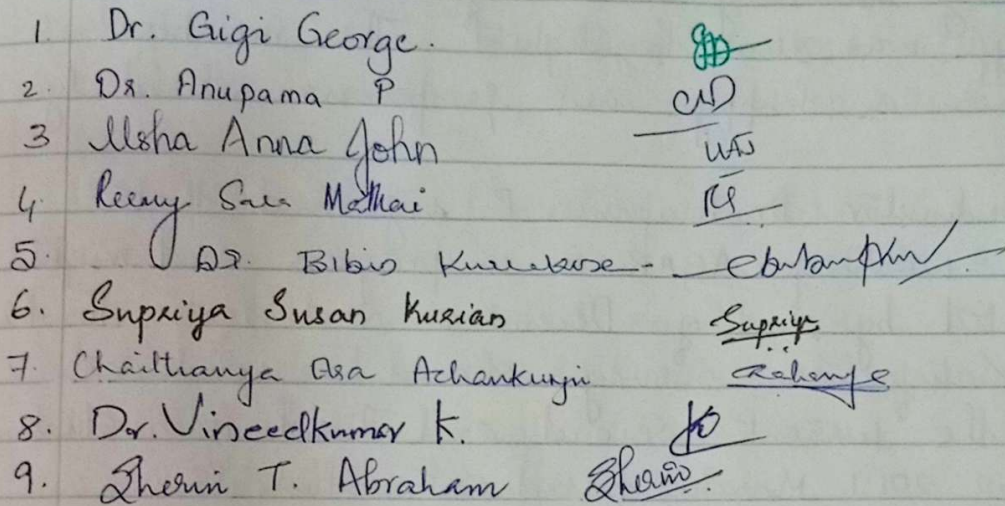 1. Dr. Gigi George.
2. Dr. Anupama P
3 Usha Anna John
4. Reeny Sara Mathai
5. Dr. Bibin Kuriakose
6. Supriya Susan Kurian Supriya
7. Chaithanya Asa Achankunju
8. Dr. Vineedkumar K.
9. Sherin T. Abraham Sherin